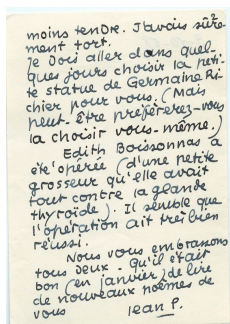 2
moins tendre. J'avais sûre-
ment tort.
Je dois aller dans quel-
ques jours choisir la peti-
te statue de Germaine Ri-
chier pour vous. (Mais
peut-être préférerez-vous
la choisir vous-même.)
Edith Boissonnas a
été opérée (d'une petite
grosseur qu'elle avait
tout contre la glande
thyroïde). Il semble que
l'opération ait très bien
réussi.
Nous vous embrassons
tous deux - Qu'il était
bon (en janvier) de lire
de nouveaux poèmes de
vous
Jean P.